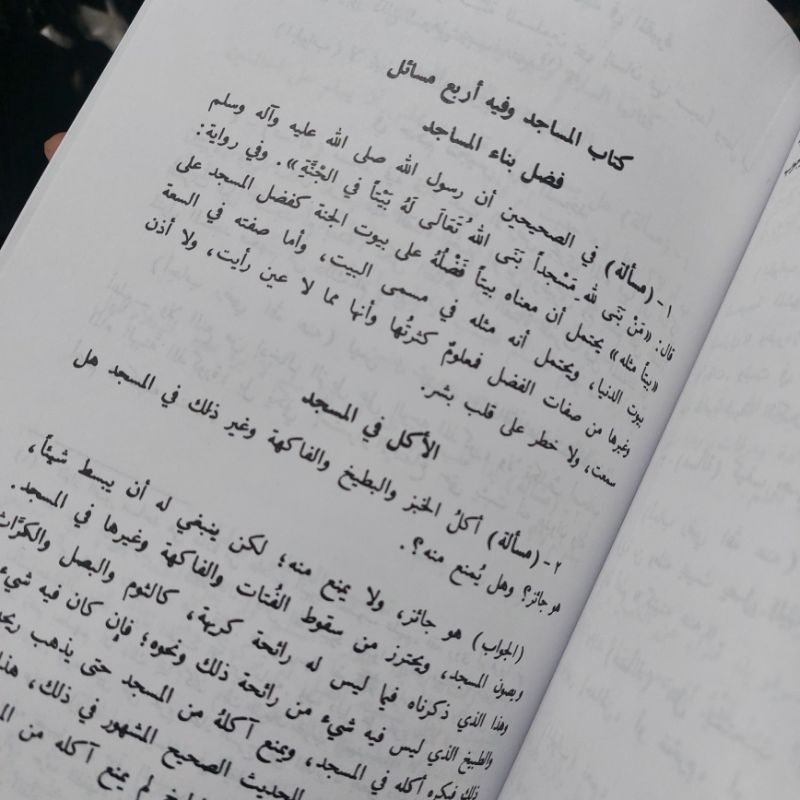 كتاب المساجد وفيه أربع مسائل
فضل بناء المساجد
١ - (مسألة) في الصحيحين أن رسول الله صلى الله عليه وآله وسلم
قال: «مَنْ بَنَى للهِ مَسْجداً بَنَى اللهُ تَعَالَى لَهُ بَيْتاً في الجَنَّةِ». وفي رواية:
«بيتاً مثله» يحتمل أن معناه بيتاً فَضْلُهُ على بيوت الجنة كفضل المسجد على
بيوت الدنيا، ويحتمل أنه مثله في مسمى البيت، وأما صفته في السعة
وغيرها من صفات الفضل فمعلومٌ كثرتُها وأنها مما لا عين رأيت، ولا أذن
سمعت، ولا خطر على قلب بشر.
الأكل في المسجد
٢ - (مسألة) أكلُ الخبز والبطيخ والفاكهة وغير ذلك في المسجد هل
هو جائز؟ وهل يُمنع منه؟.
(الجواب) هو جائز، ولا يمنع منه؛ لكن ينبغي له أن يبسط شيئاً،
ويصون المسجد، ويحترز من سقوط الفُتات والفاكهة وغيرها في المسجد.
وهذا الذي ذكرناه فيما ليس له رائحة كريهة، كالثوم والبصل والكرَّاث
والطبيخ الذي ليس فيه شيء من رائحة ذلك ونحوه؛ فإن كان فيه شيء
ذلك فيكره أكله في المسجد، ويمنع آكلهُ من المسجد حتى يذهب
الحديث الصحيح المشهور في ذلك، هذا
لم يمنع آكله من